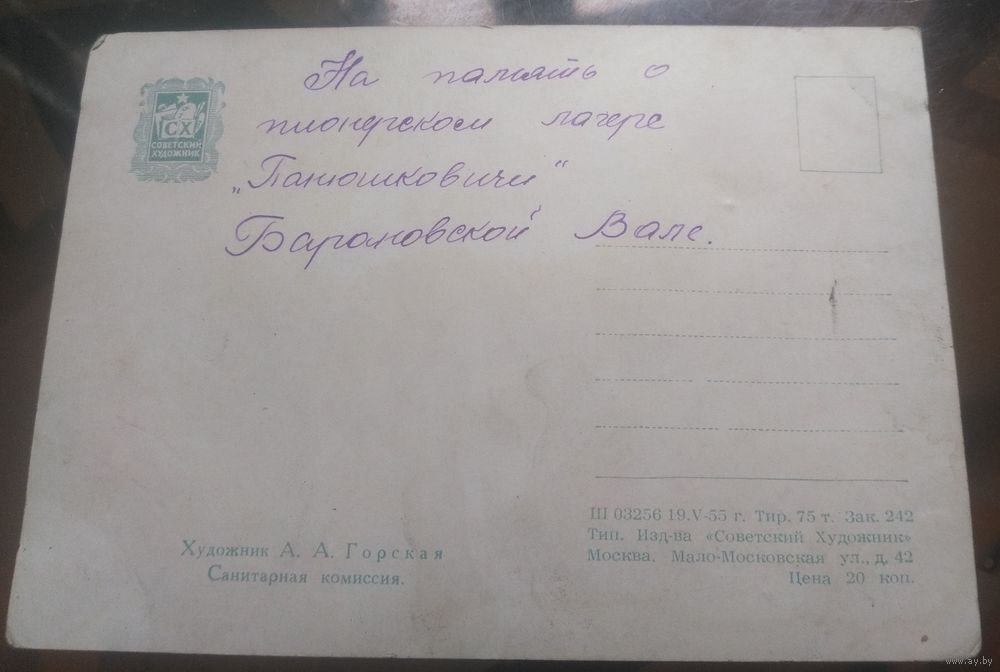 На память о
пионерском лагере
„Панюшковичи"
Барановской Вале.
СХ
СОВЕТСКИЙ
ХУДОЖНИК
Художник А. А. Горская
Санитарная комиссия.
Ш 03256 19.V-55 г. Тир. 75 т. Зак. 242
Тип. Изд-ва «Советский Художник»
Москва, Мало-Московская ул., д. 42
Цена 20 коп.
www.ay.by